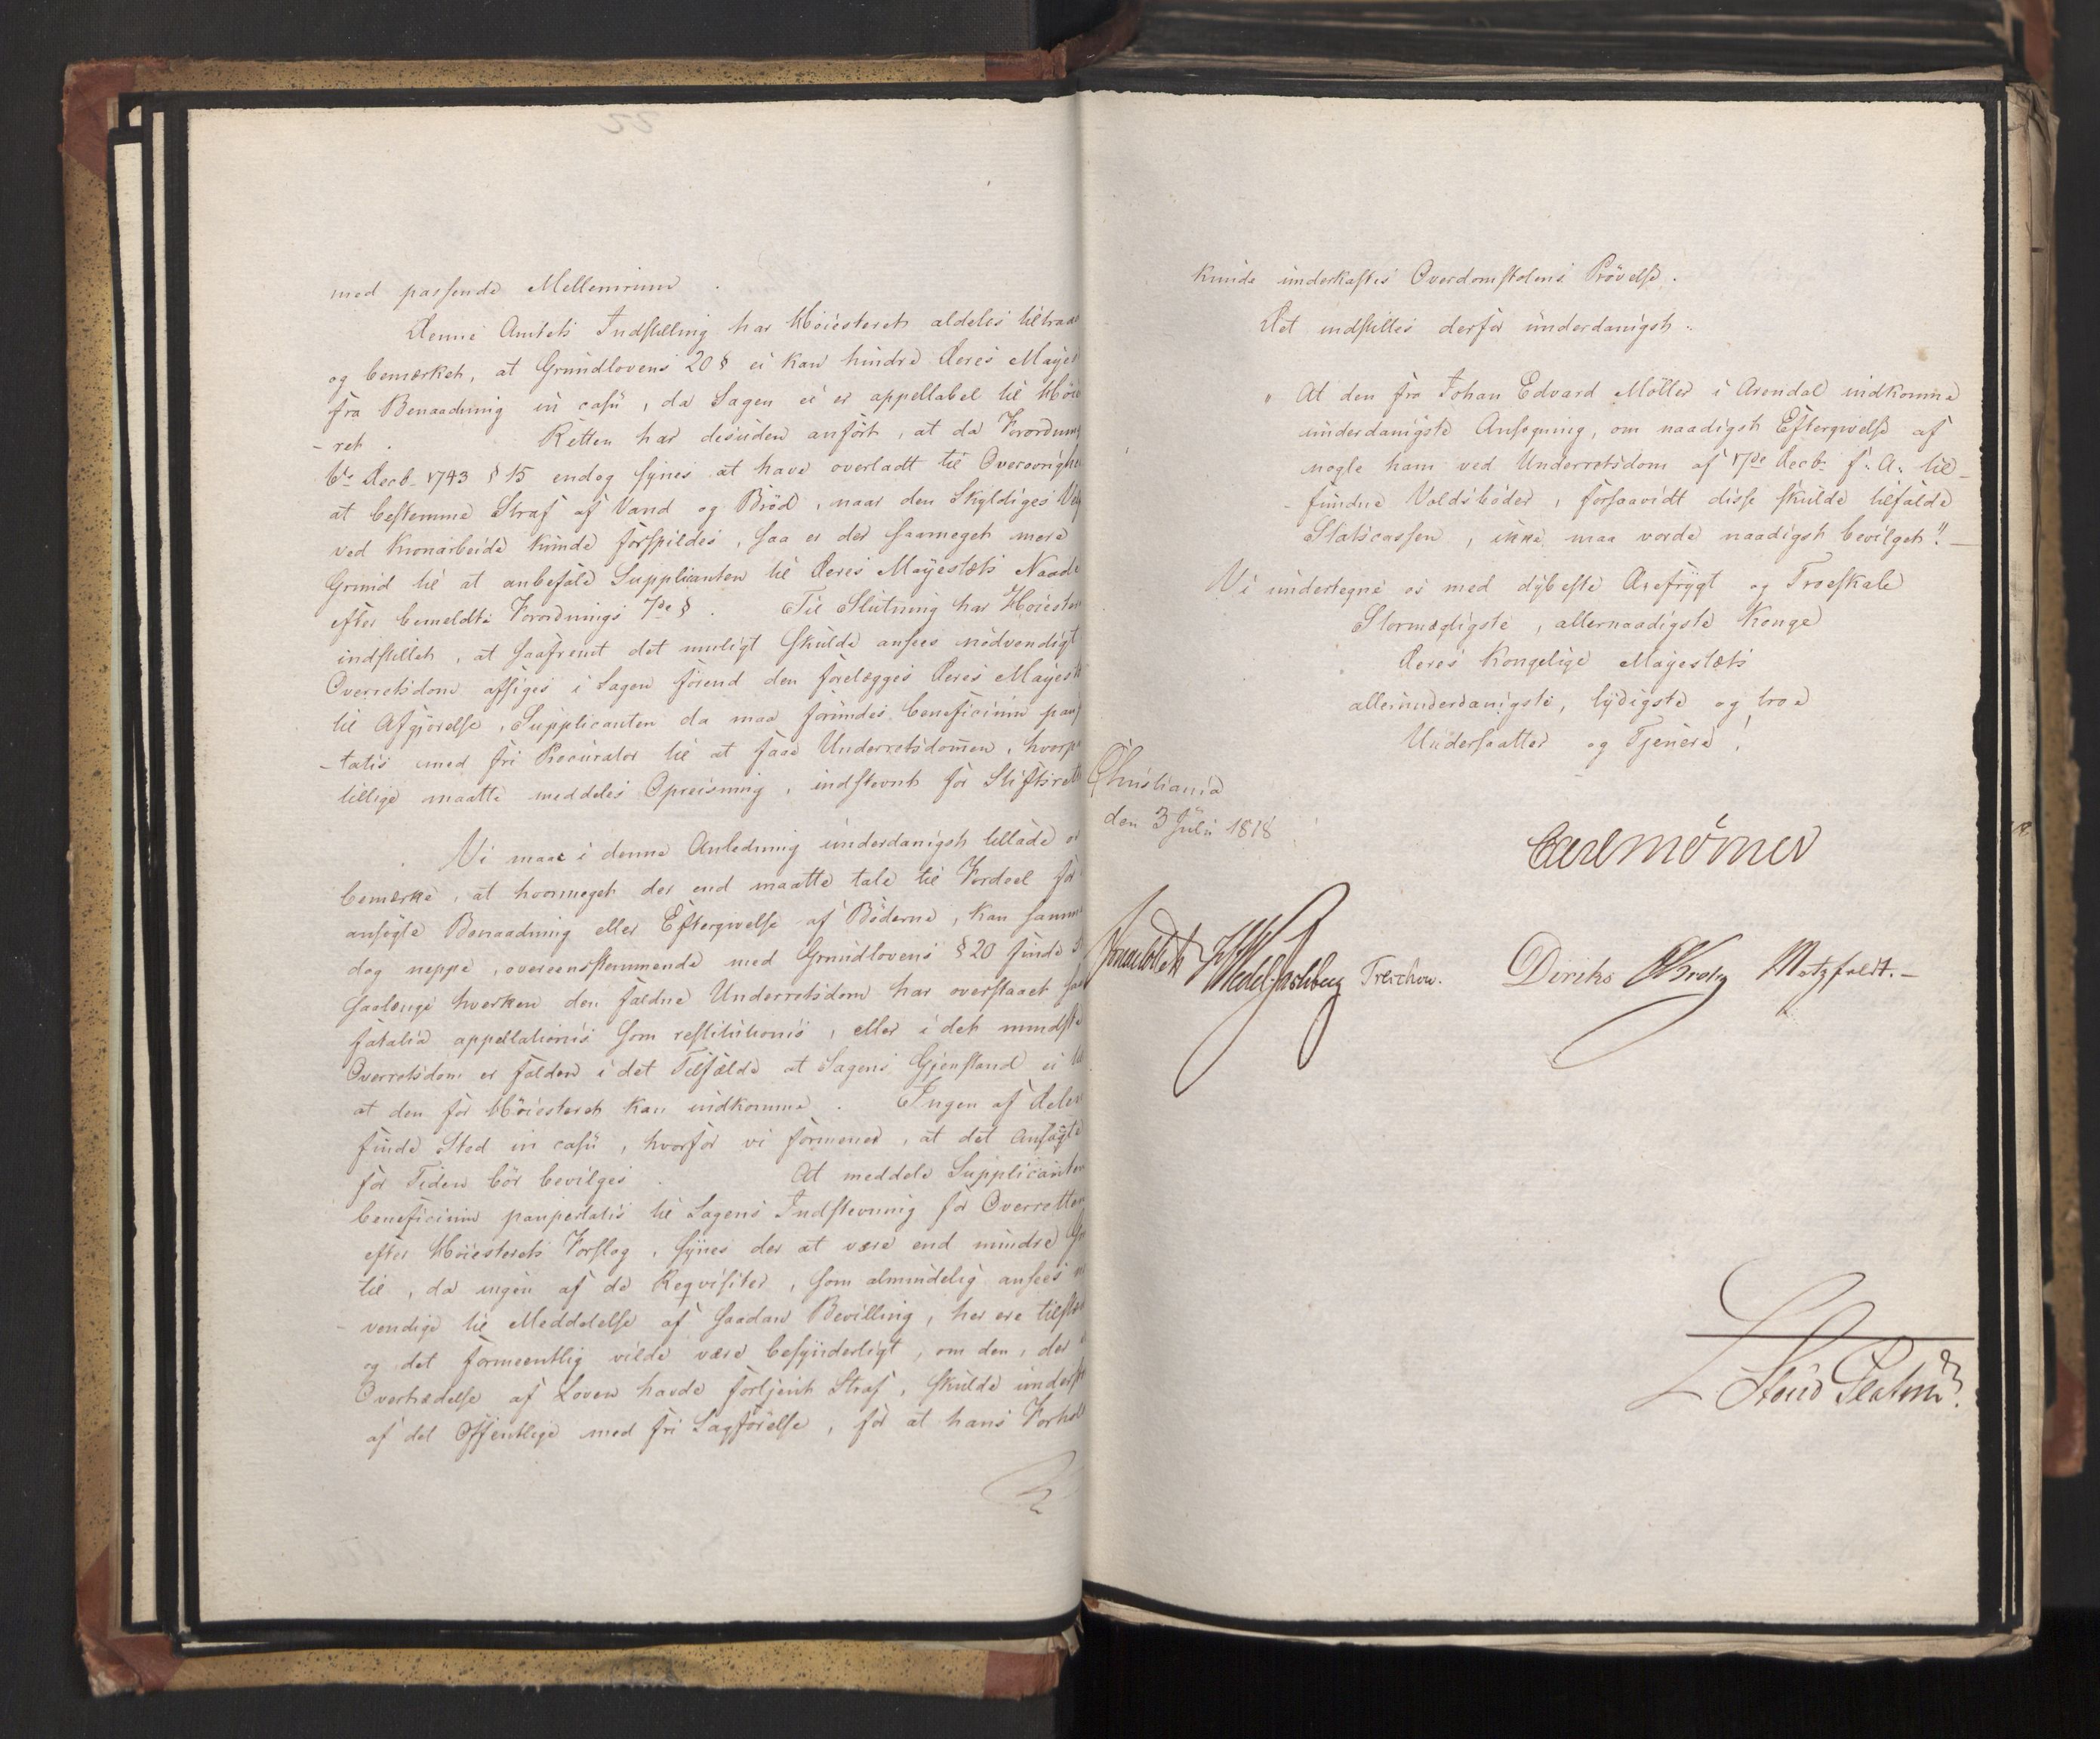 med passende Mellemrum.
Denne Amtets Indstilling har Höiesteret aldeles tiltraad
og bemærket, at Grundlovens 20 § ei kan hindre Deres Majes
fra Benaadning in casu, da Sagen ei er appellabel til Höie
-ret. Retten har desuden anført, at da Forordning
6te Decb. 1743 § 15 endog synes at have overladt til Øvrigh
at bestemme Straf af Vand og Bröd, naar den Skyldiges
ved Kronarbeide kunde forspildes, saa er der saameget mere
Grund til at anbefale Supplicanten til Deres Mayestæts Naade
efter bemeldte Forordnings 7de §. Til Slutning har Høiester
indstillet, at saafremt det muligt skulde ansees nödvendigt
Overretsdom afsiges i Sagen förend den forelægges Deres Mayest
til Afgjørelse, Supplicanten da maa forundes beneficium pau
-tatis med fri Procurator til at faae Underretsdommen, hvorp
tillige maatte meddeles Opreisning, indstevnt for Stiftsrett
Vi maae i denne Anledning underdanigst tillade os
bemærke, at hvormeget der end maatte tale til Fordeel for
ansögte Benaadning eller Eftergivelse af Böderne, kan samme
dog neppe, overeensstemmende med Grundlovens § 20 finde S
saalænge hverken den faldne Underretsdom har overstaaet saa
fatalia appellationis som restitutionis, eller i det mindste
Overretsdom er falden i det Tilfælde at Sagens Gjenstand ei
at den for Höiesteret kan indkomme. Ingen af Dele
finde Sted in casu, hvorfor vi formener, at det Ansögte
for Tiden bör bevilges. At meddele Supplicanten
beneficium paupertatis til Sagens Indstevning for Overretten
efter Höiesterets Forslag, synes der at være end mindre
til, da ingen af de Reqvisiter, som almindelig ansees
-vendige til Meddelelse af saadan Bevilling, her ere tilstæ
og det formeentlig vilde være besynderligt, om den, der
Overtrædelse af Loven havde fortjent Straf, skulde underst
af det Offentlige med fri Sagförelse, for at hans Forhold
kunde underkastes Overdomstolens Prövelse.
Det indstilles derfor underdanigst:
"At den fra Johan Edvard Möller i Arendal indkomne
underdanigste Ansøgning, om naadigst Eftergivelse af
nogle ham ved Underretsdom af 17de Decbr f. A. til-
-fundne Voldsböder, forsaavidt disse skulde tilfalde
Statscassen, ikke maa vorde naadigst bevilget".
Vi undertegne os med dybeste Ærefrygt og Troeskab
Stormægtigste, allernaadigste Konge
Deres Kongelige Mayestæts
allerunderdanigste, lydigste og troe
Undersaatter og Tjenere!
Christiania
den 3 Juli 1818
Carl Mörner
Sommerhielm HWedel Jarlsberg Treschow. Diriks Krohg Motzfeldt.